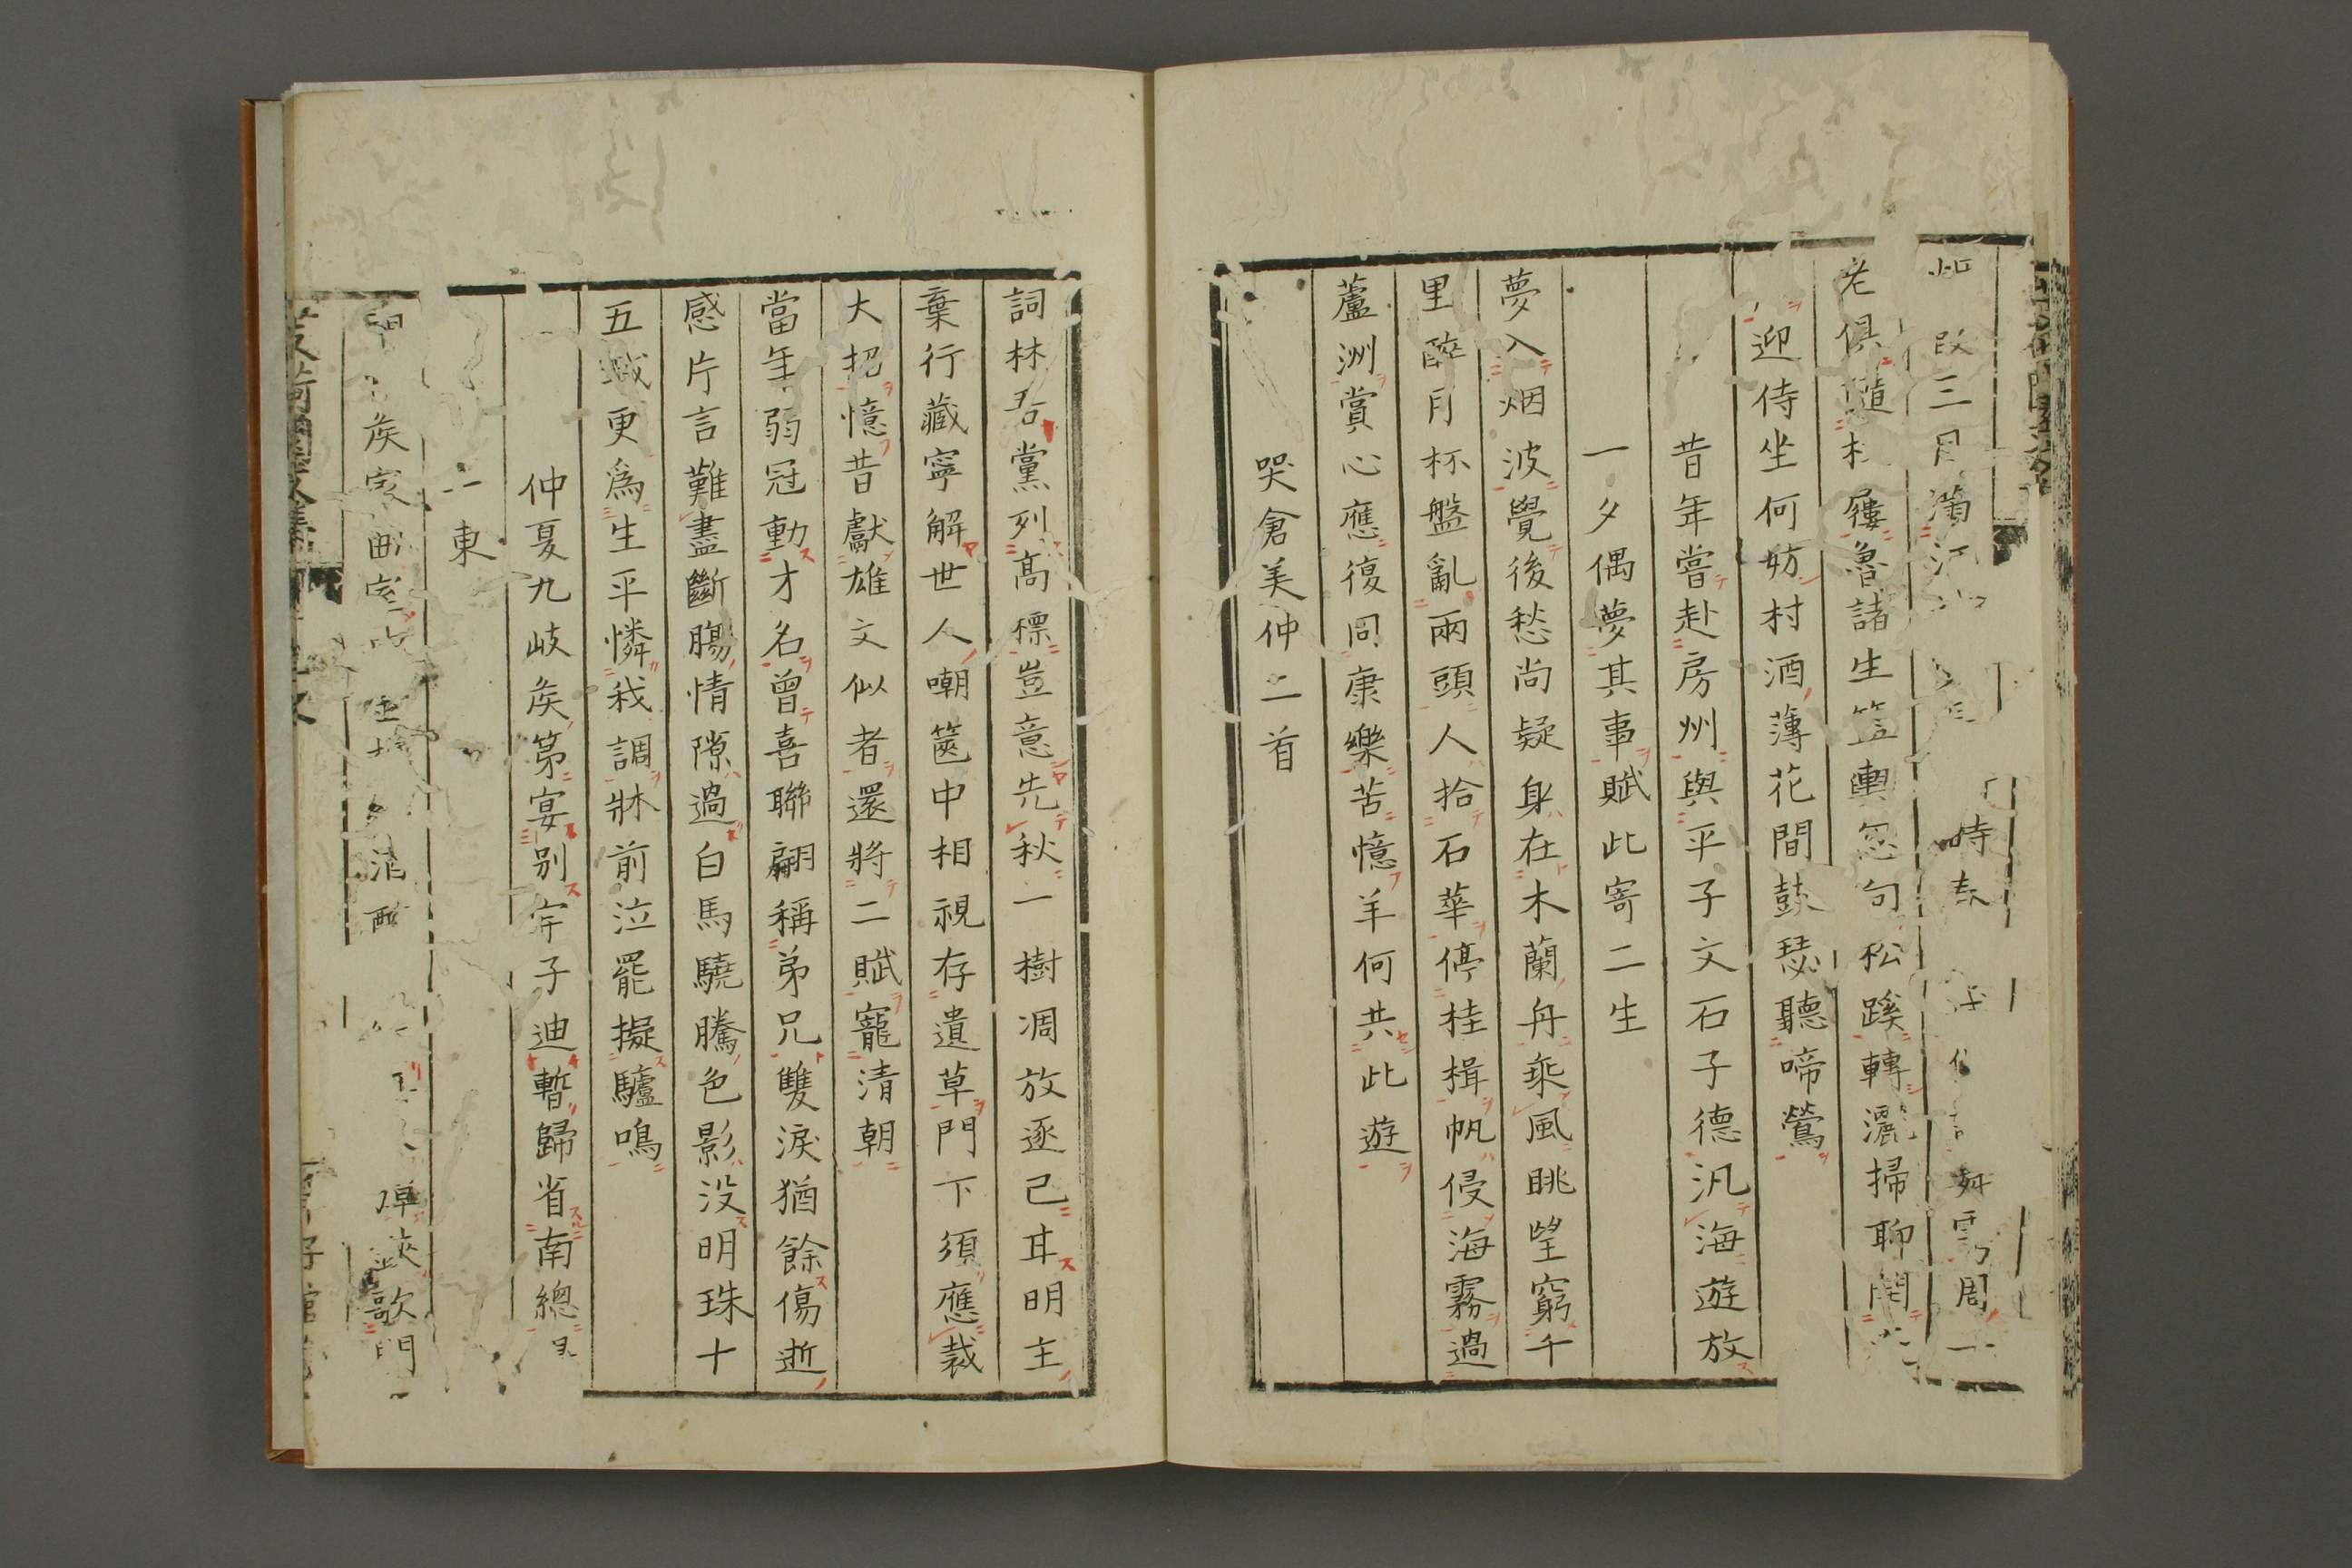 三月滿
時
舞雩周一
老俱隨杖屨魯諸生笠輿忽句松蹊轉灑掃聊開
迎侍坐何妨村酒薄花間鼓瑟聽啼鶯
昔年嘗赴房州與平子文石子德汎海遊放
一夕偶夢其事賦此寄二生
夢入烟波覺後愁尚疑身在木蘭舟乘風眺望窮千
里醉月杯盤亂兩頭人拾石華停桂楫帆侵海霧過
蘆洲賞心應復同康樂苦憶羊何共此遊
哭倉美仲二首
詞林吾黨列高標豈意先秋一樹凋放逐已甘明主
棄行藏寧解世人嘲篋中相視存遺草門下須應裁
大招憶昔獻雄文似者還將二賦寵清朝
當年弱冠動才名曾喜聯翩稱弟兄雙淚猶餘傷逝
感片言難盡斷腸情隙過白馬驍騰色影沒明珠十
五城更爲生平憐我調牀前泣罷擬驢鳴
仲夏九岐矦第宴別宇子迪暫歸省南總
東
矦家
歌門